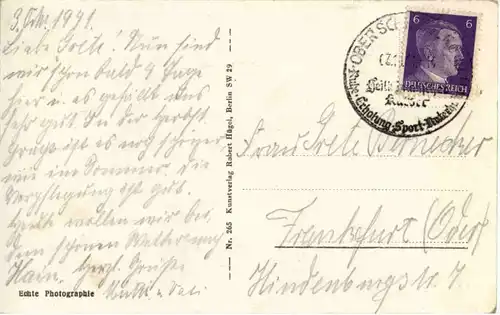 3. Okt. 1941.
Liebe Grete! Nun sind
wir schon bald 4 Tage
hier u. es gefällt uns
sehr gut. In der Herbst-
ist es noch schöner
wie im Sommer. Die
Verpflegung ist gut.
Heute wollen wir bei
dem schönen Wetter nach
Hain. Herzl. Grüße
Echte Photographie
Nr. 265 Kunstverlag Robert Hügel, Berlin SW 29
OBER SCH
Erholung Sport
6 6
DEUTSCHES REICH
Frau Grete
Frankfurt (Oder)
Hindenburgstr. 7.